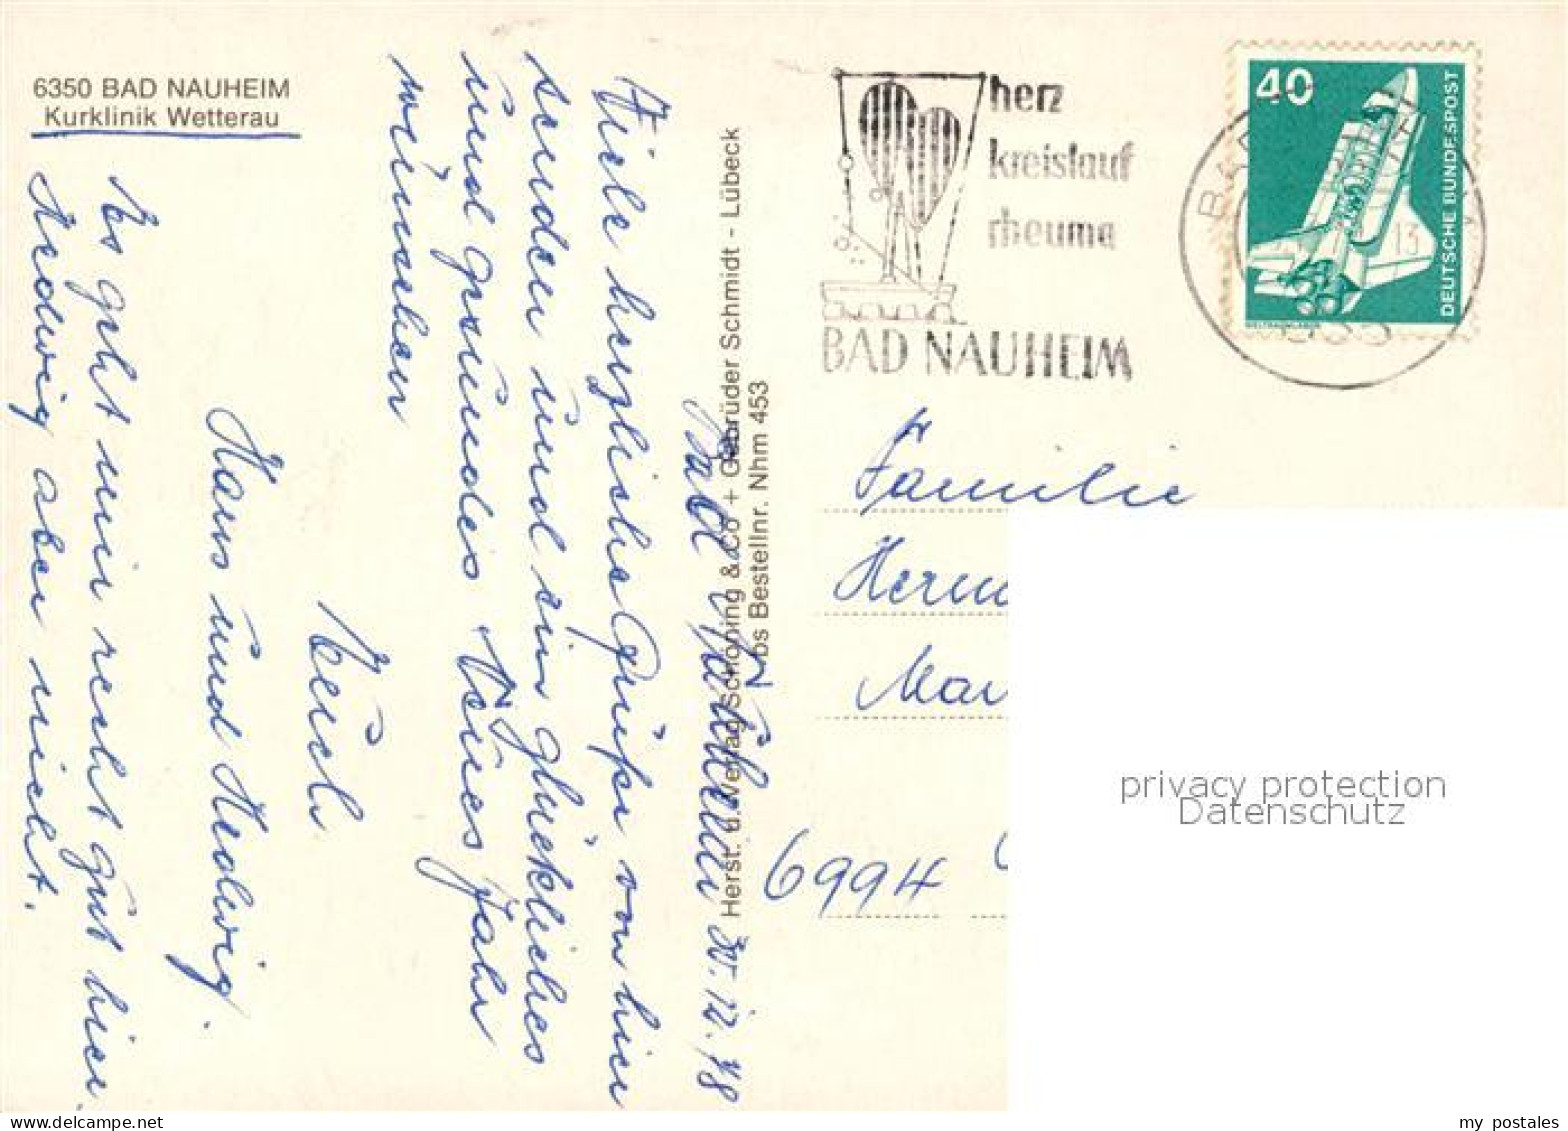 6350 BAD NAUHEIM
Kurklinik Wetterau
Bad Nauheim 30.12.78
Viele herzliche Grüße von hier
senden und ein glückliches
und gesundes Neues Jahr
wünschen
Euch
Hans und Hedwig.
Es geht mir recht gut hier
Hedwig aber nicht.
Herst. u. Verlag Schöning & Co + Gebrüder Schmidt - Lübeck
bs Bestellnr. Nhm 453
herz
kreislauf
rheuma
BAD NAUHEIM
40
DEUTSCHE BUNDESPOST
WELTRAUMLABOR
13
Familie
6994
privacy protection
Datenschutz
my postales